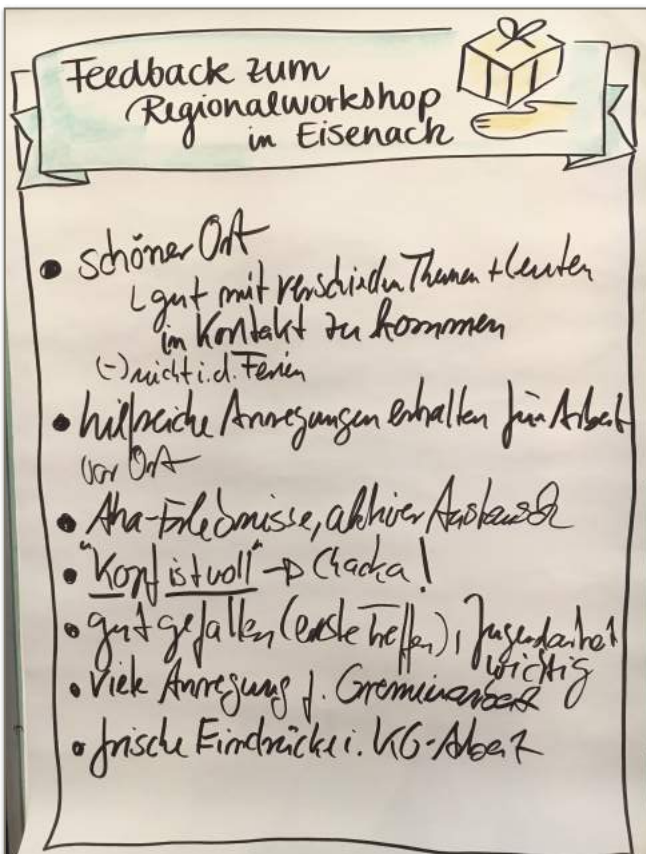 Feedback zum
Regionalworkshop
in Eisenach
• schöner Ort
gut mit verschieden Themen + Leuten
in Kontakt zu kommen
(-) nicht i. d. Ferien
• hilfreiche Anregungen erhalten für Arbeit
vor Ort
• Aha-Erlebnisse, aktiver Austausch
• "Kopf ist voll" → Chacka!
• gut gefallen (erste Treffen), Jugendarbeit
wichtig
• Viele Anregung f. Gremienarbeit
• frische Eindrücke i. KG-Arbeit